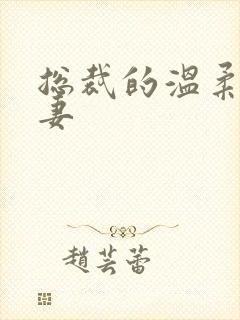 总裁的温柔
妻
趙芸蕾